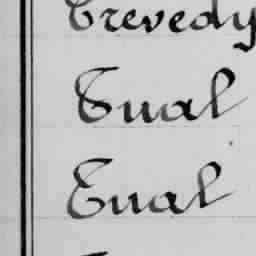 Trevedy
Tual
Tual